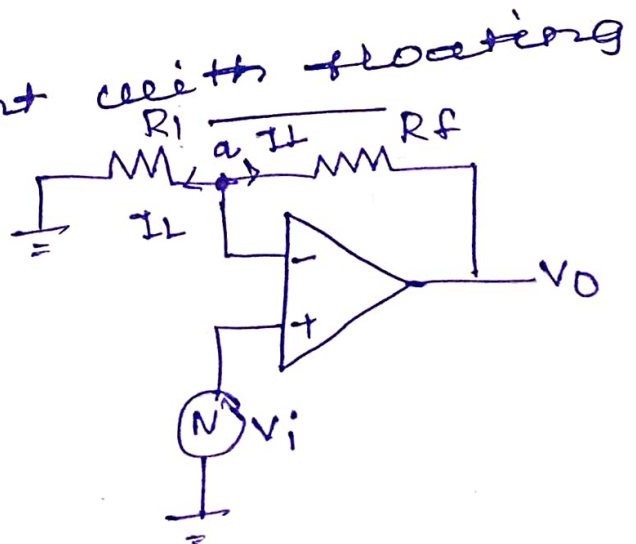 with floating
R1 a IL Rf
IL
-
+
VO
N Vi